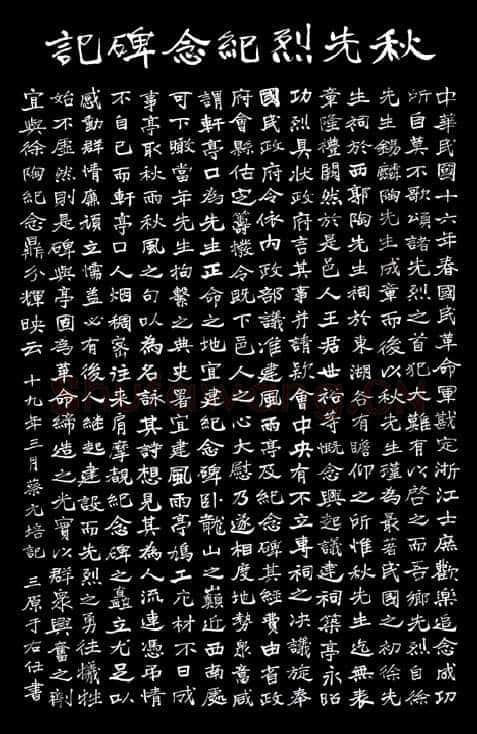 秋先烈紀念碑記
中華民國十六年春國民革命軍戡定浙江士庶歡樂追念成功
所自莫不歌頌諸先烈之首犯大難有以啓之而吾鄉先烈自徐
先生錫麟陶先生成章而後以秋先生瑾為最著民國之初徐先
生祠於西郭陶先生祠於東湖各有瞻仰之所惟秋先生迄無表
章隆禮闕然於是邑人王君世裕等慨念興起議建祠築亭永昭
功烈具狀政府言其事并請欵會中央有不立專祠之决議旋奉
國民政府令依内政部議准建風雨亭及紀念碑其經費由省政
府會縣估定籌撥令既下邑人之心大慰乃遂相度地勢泉意咸
謂軒亭口為先生正命之地宜建紀念碑卧龍山之巔近西南處
可下瞰當年先生拘繫之典史署宜建風雨亭鳩工庀材不日成
事亭取秋雨秋風之句以為名詠其詩想見其為人流連憑弔情
不自已而軒亭口人烟稠密往来肩摩覩紀念碑之矗立尤足以
感動群情廉頑立懦蓋必有後人繼起建設而先烈之勇往犧牲
始不虛然則是碑與亭固為革命締造之光實以群眾興奮之劑
宜與徐陶紀念鼎分輝映云 十九年三月蔡元培記 三原于右任書